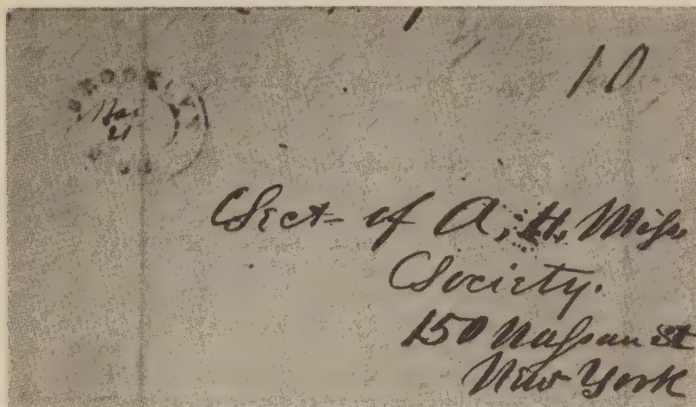 10
BROOKLYN
Mar
21
Sect- of A. H. Miss
Society.
150 Nassau St
New York